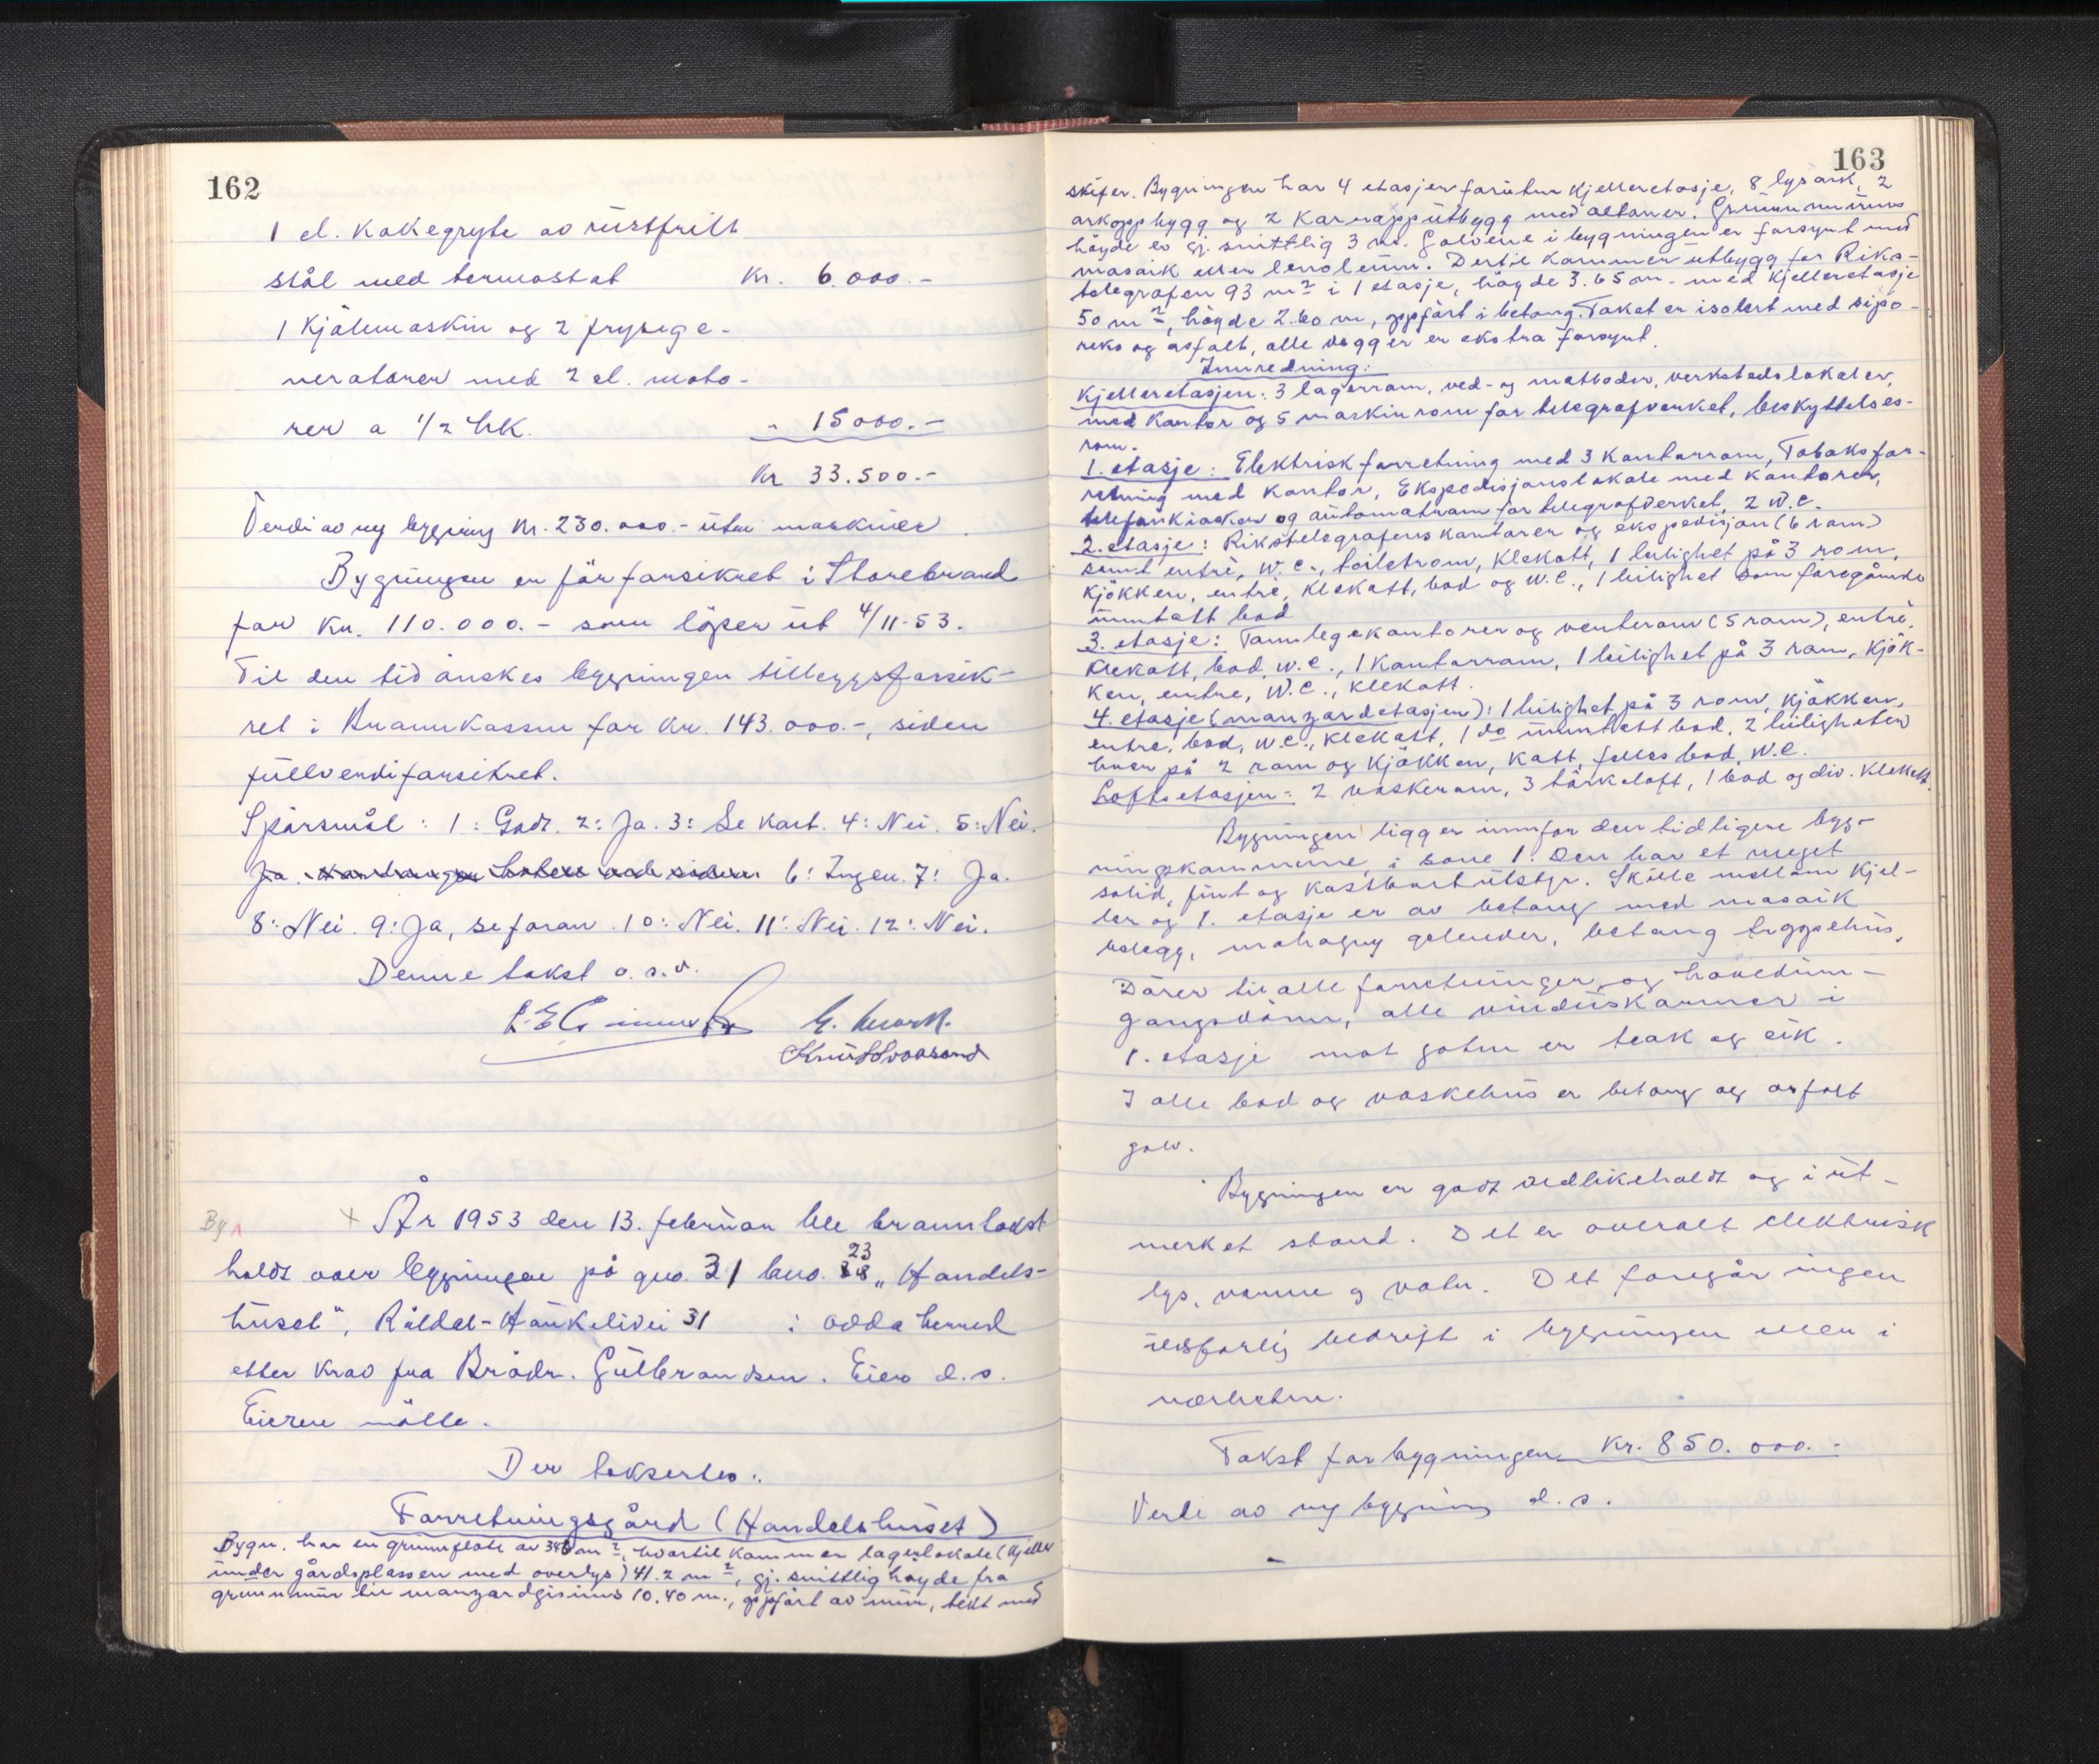 162
1 el. Kokegryte av rustfritt
stål med termostat Kr. 6.000.-
1 Kjølemaskin og 2 frysege-
neratorer med 2 el. moto-
rer a 1/2 hk. " 15000.-
Kr 33.500.-
Verdi av ny bygning Kr. 230.000.- uten maskiner.
Bygningen er før forsikret i Storebrand
for Kr. 110.000.- som løper ut 4/11-53.
Til den tid ønskes bygningen tilleggsforsik-
ret i Brannkassen for kr. 143.000.-, siden
fullverdiforsikret.
Spørsmål: 1: Godt. 2: Ja. 3: Se Kart. 4: Nei. 5: Nei.
Ja. 6: Ingen. 7: Ja.
8: Nei. 9: Ja, se foran. 10: Nei. 11: Nei. 12: Nei.
Denne takst o.s.v.
By
+ År 1953 den 13. februar ble branntakst
holdt over bygningen på gno. 31 bno. 23 "Handels-
huset", Røldal-Haukelivei 31 i Odda herred
etter Krav fra Brødr. Gulbrandsen. Eier d.s.
Eieren møtte.
Der takserтes:
Forretningsgård (Handelshuset)
Bygn. har en grunnflate av 346 m2, hvortil kommer lagerlokale (Kjeller
under gårdsplassen med overlys) 41.2 m2, gj. snittlig høyde fra
grunnmur til manzardgisims 10.40 m., oppført av mur, tekt med
163
skifer. Bygningen har 4 etasjer foruten Kjelleretasje, 8 lysark, 2
arkoppbygg og 2 Karnapputbygg med altaner. Grunnmurens
høyde er gj. snittlig 3 m. Golvene i bygningen er forsynt med
mosaik eller lenoleum. Dertil kommer utbygg for Riks-
telegrafen 93 m2 i 1 etasje, høyde 3.65 m. med Kjelleretasje
50 m2, høyde 2.60 m, oppført i betong. Taket er isolert med sipo-
reks og asfalt, alle vegger er ekstra forsynt.
Innredning:
Kjelleretasjen: 3 lagerrom, ved- og matboder, verkstedslokaler,
med Kontor og 5 maskinrom for telegrafverket, beskyttelses-
rom.
1. etasje: Elektrisk forretning med 3 Kontorrom, Tobaksfor-
retning med Kontor, Ekspedisjonslokale med Kontorer,
telefonkiosker og automatrom for telegrafverket, 2 W.C.
2. etasje: Rikstelegrafens kontorer og ekspedisjon (6 rom)
samt entre, W.C., toiletrom, Klekott, 1 leilighet på 3 rom,
Kjøkken, entre, Klekott, bad og W.C., 1 leilighet som foregående
unntatt bad
3. etasje: Tannlegekontorer og venterom (5 rom), entre,
Klekott, bad, W.C., 1 Kontorrom, 1 leilighet på 3 rom, Kjøk-
ken, entre, W.C., Klekott.
4. etasje (manzardetasjen): 1 leilighet på 3 rom, Kjøkken,
entre, bad, W.C., Klekott, 1 do unntatt bad, 2 leiligheter
hver på 2 rom og Kjøkken, Kott, felles bad, W.C.
Loftsetasjen: 2 vaskerom, 3 tørkeloft, 1 bod og div. Klekott.
Bygningen ligger innfor den tidligere byg-
ningskommune, i sone 1. Den har et meget
solid, fint og kostbart utstyr. Skille mellom Kjel-
ler og 1. etasje er av betong med mosaik
belegg, mahogny gelender, betong trappehus,
Dører til alle forretninger, og hovedinn-
gangsdører, alle vinduskarmer i
1. etasje mot gaten er teak og eik.
I alle bad og vaskehus er betong og asfalt
golv.
Bygningen er godt vedlikeholdt og i ut-
merket stand. Det er overalt elektrisk
lys, varme og vater. Det foregår ingen
ildsfarlig bedrift i bygningen eller i
nærheten.
Takst for bygningen Kr. 850.000.-
Verdi av ny bygning d.s.